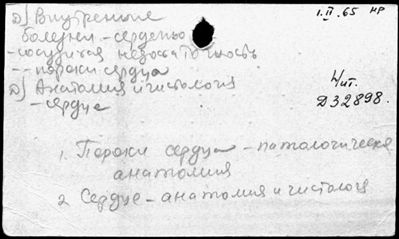 1.II.65 НР
Д) Внутренние
болезни - сердечно
- сосудистая недостаточность
-- пороки сердца
Д) Анатомия и гистология
- сердце
Чит.
Д32898.
1. Пороки сердца - патологическая
анатомия
2 Сердце - анатомия и гистология